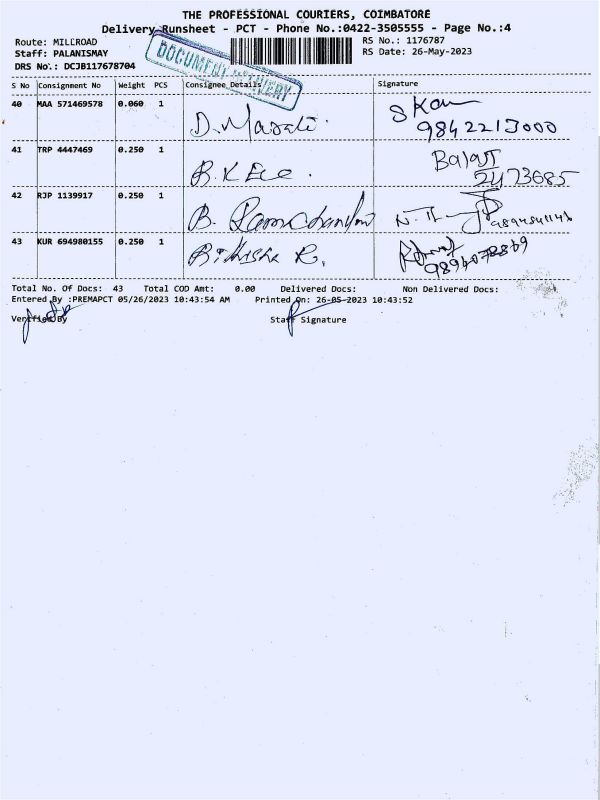 THE PROFESSIONAL COURIERS, COIMBATORE
Delivery Runsheet - PCT - Phone No.:0422-3505555 - Page No.:4
Route: MILLROAD
RS No.: 1176787
Staff: PALANISMAY
RS Date: 26-May-2023
DRS No.: DCJB117678704
DOCUMENT DELIVERY
S No Consignment No Weight PCS Consignee Details Signature
40 MAA 571469578 0.060 1
9842213000
41 TRP 4447469 0.250 1 Balaji
B.K 2473685
42 RJP 1139917 0.250 1
B. Ramchandra
43 KUR 694980155 0.250 1
R. 9894078869
Total No. Of Docs: 43 Total COD Amt: 0.00 Delivered Docs: Non Delivered Docs:
Entered By :PREMAPCT 05/26/2023 10:43:54 AM Printed On: 26-05-2023 10:43:52
Verified By Staff Signature